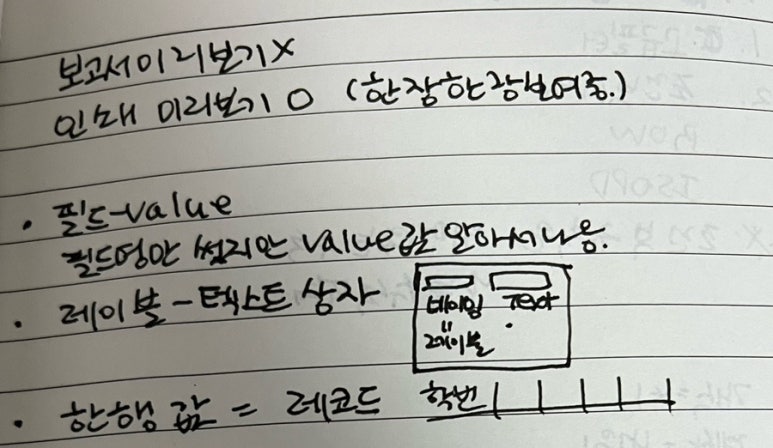 보고서미리보기X
인쇄 미리보기 O (한장한장보여줌.)
• 필드-value
필드명만 썼지만 value값 알아서나옴.
• 레이블-텍스트 상자
네임 Text
"
레이블
• 한행 값 = 레코드 학번